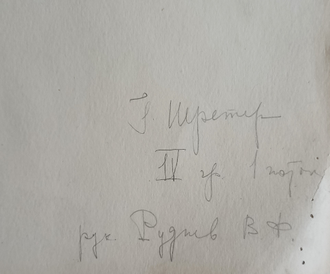 Г Шретер
IV гр. 1
рук. Руднев В Ф.